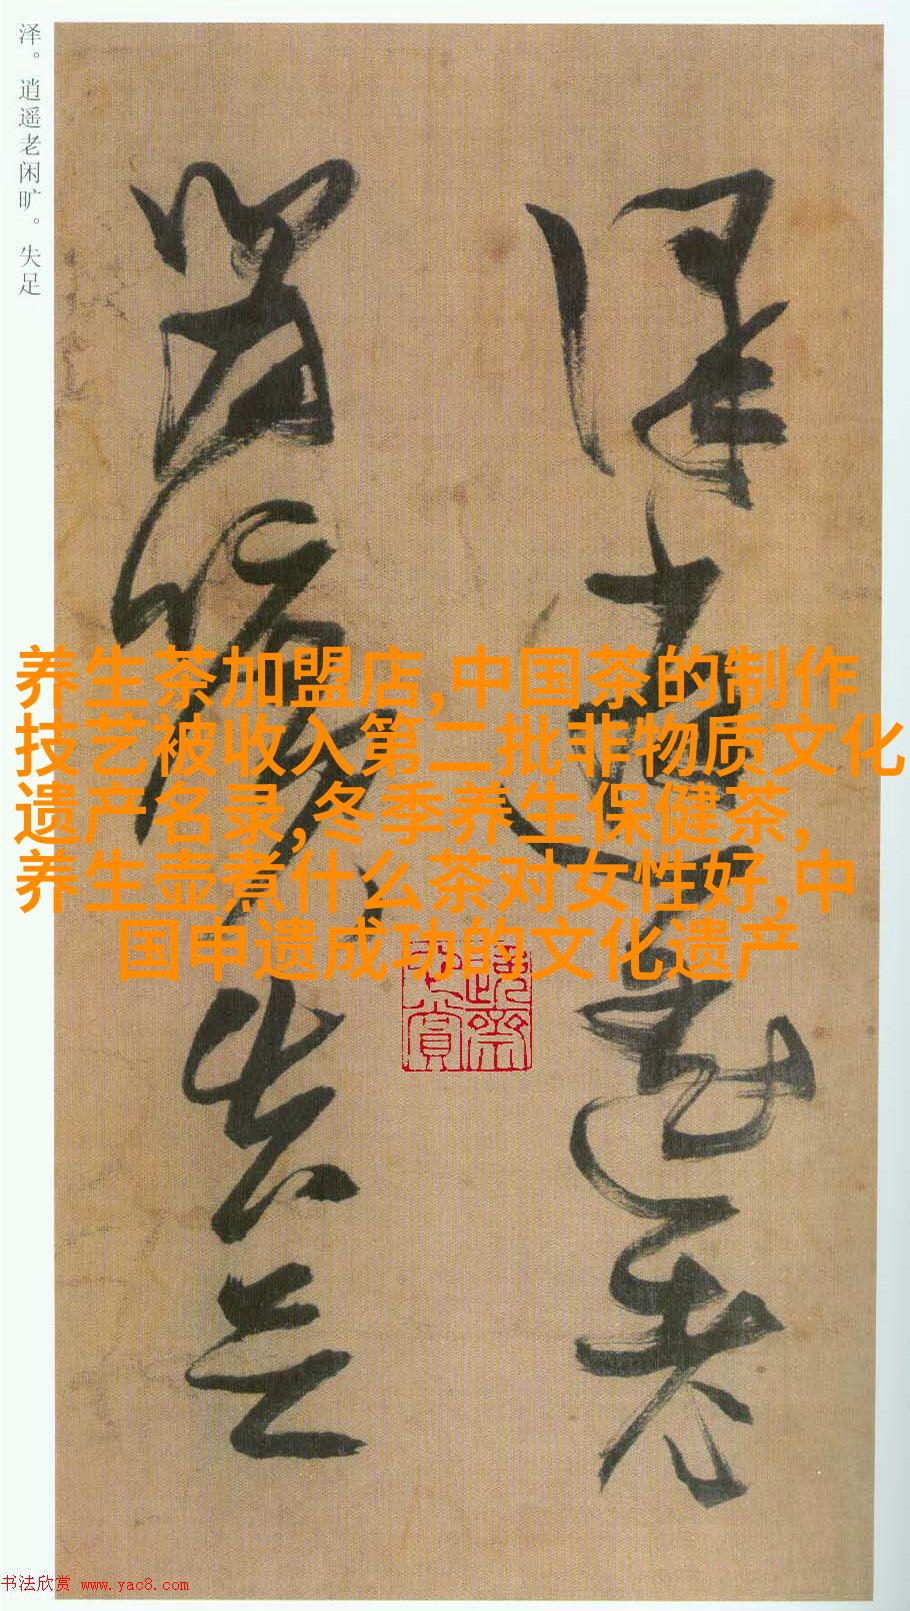 泽。逍遥老闲旷。失足
泽逍遥老
闲旷失足
养生茶加盟店,中国茶的制作
技艺被收入第二批非物质文化
遗产名录,冬季养生保健茶,
养生壶煮什么茶对女性好,中
国申遗成功的文化遗产
书法欣赏 www.yac8.com